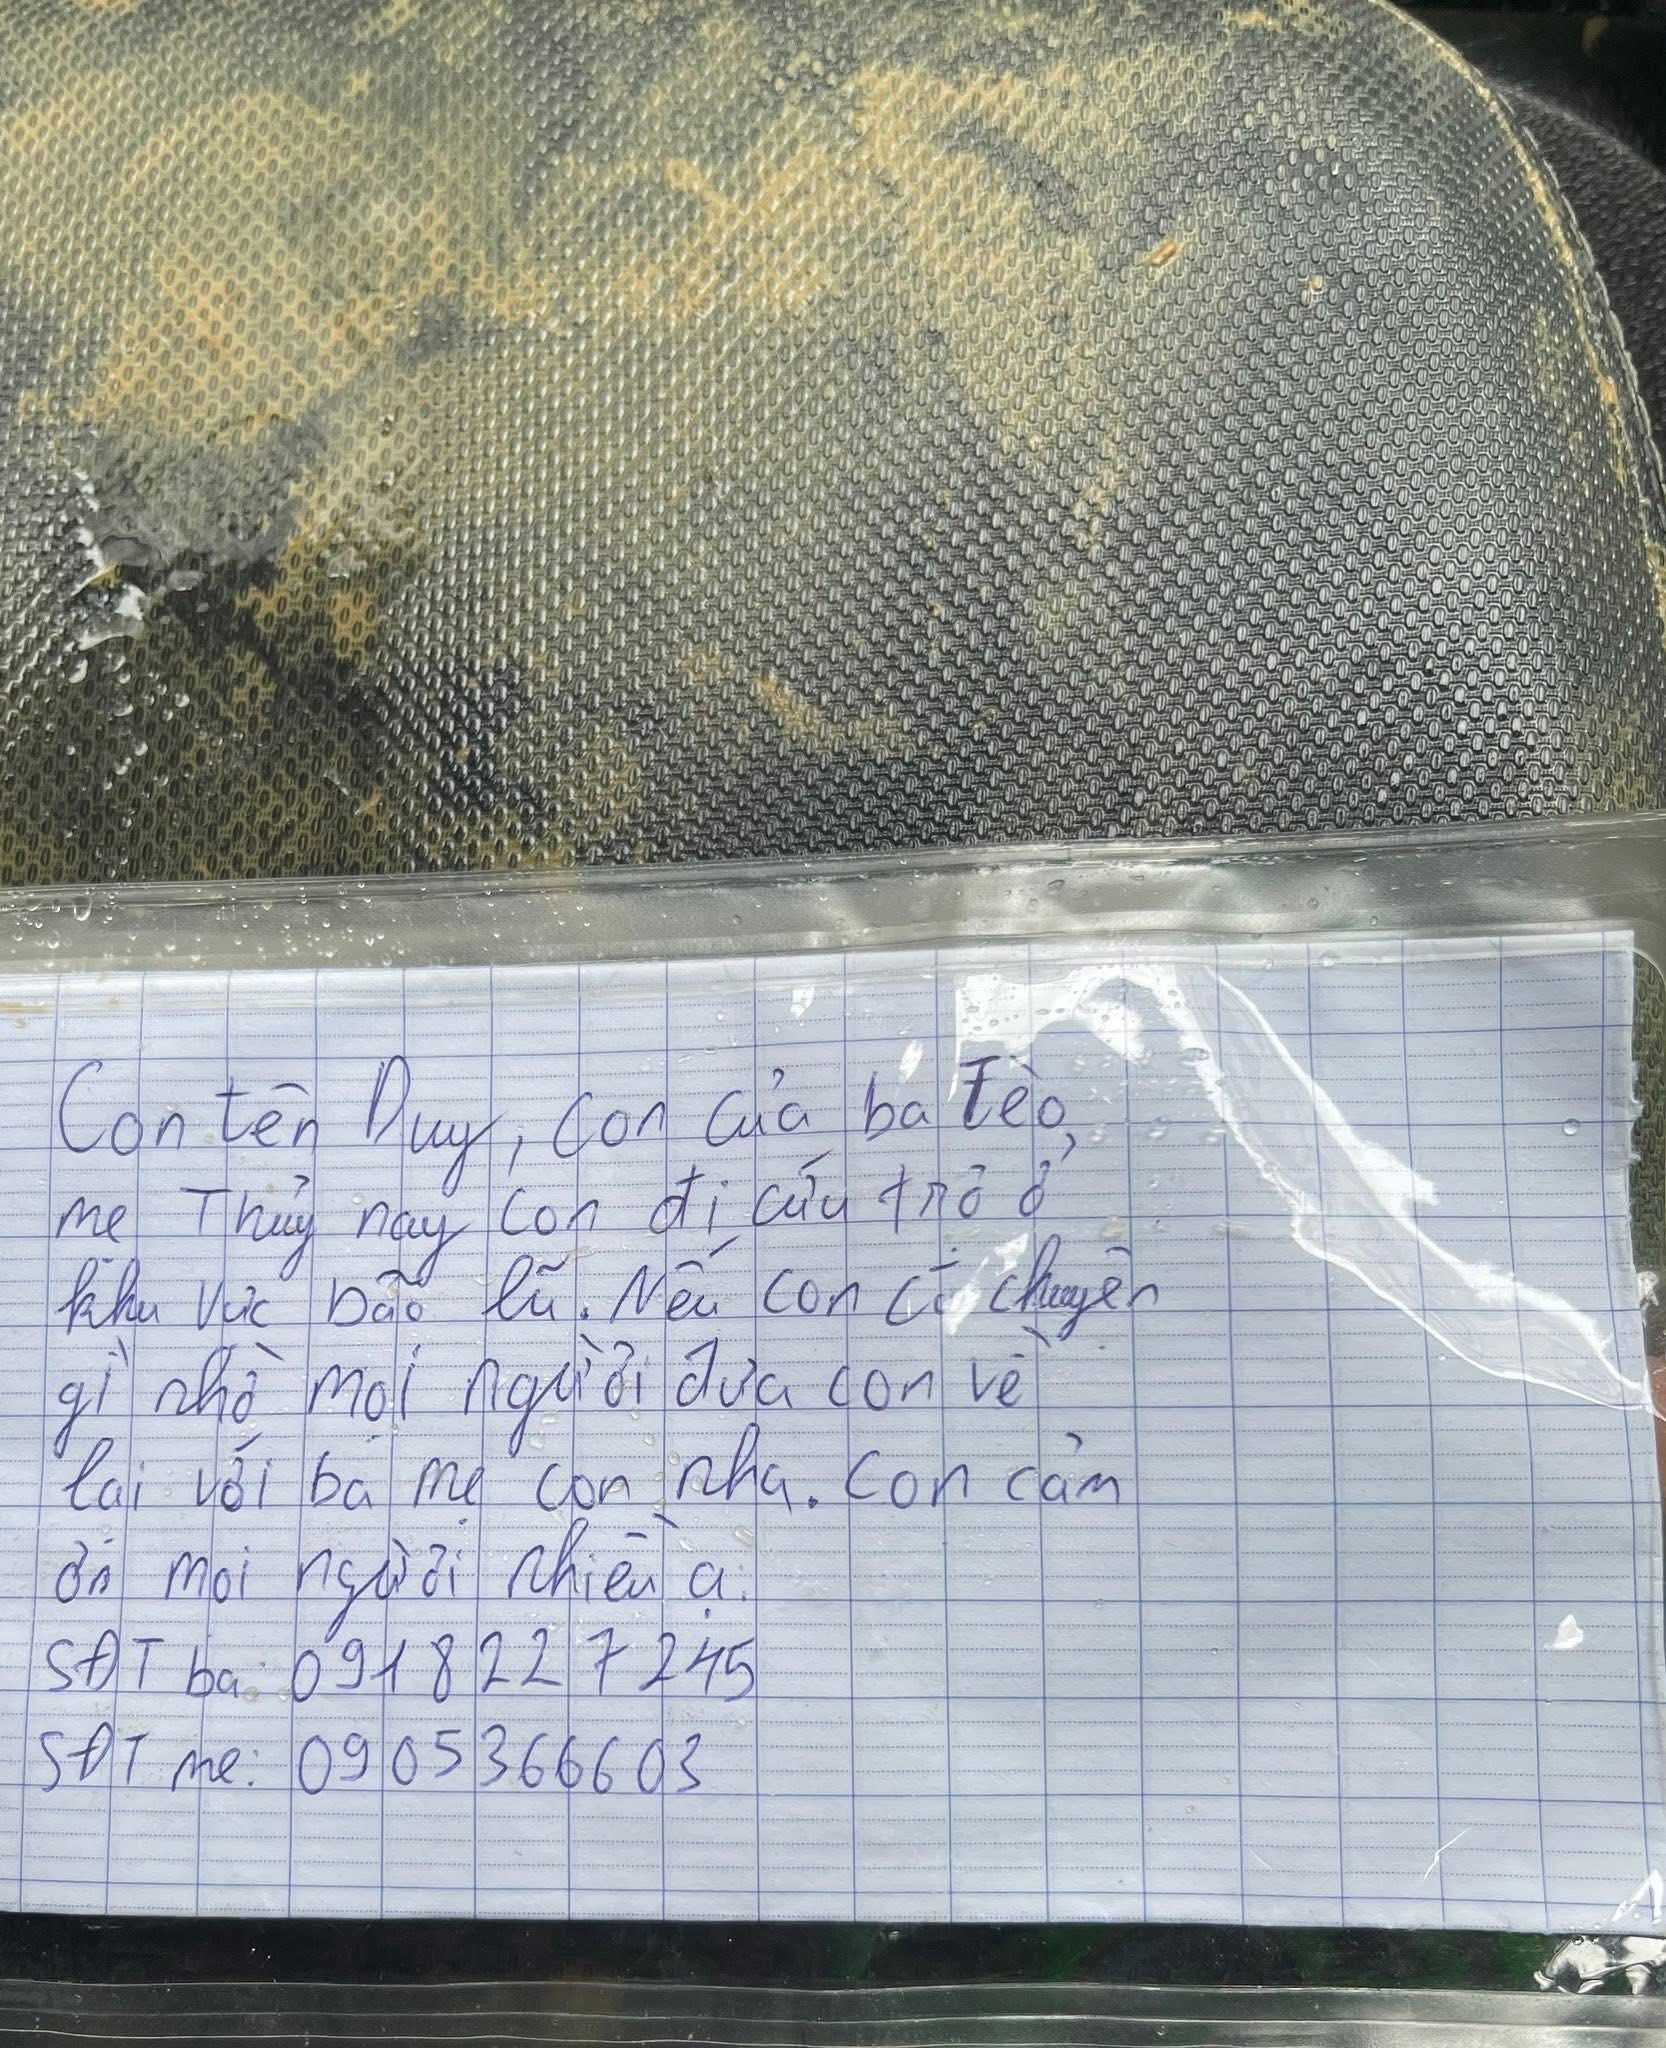 Con tên Duy, con của ba Tèo,
mẹ Thủy nay con đi cứu trợ ở
khu vực bão lũ. Nếu con có chuyện
gì nhờ mọi người đưa con về
lại với ba mẹ con nha. Con cảm
ơn mọi người nhiều ạ.
SĐT ba: 0918227245
SĐT mẹ: 0905366603